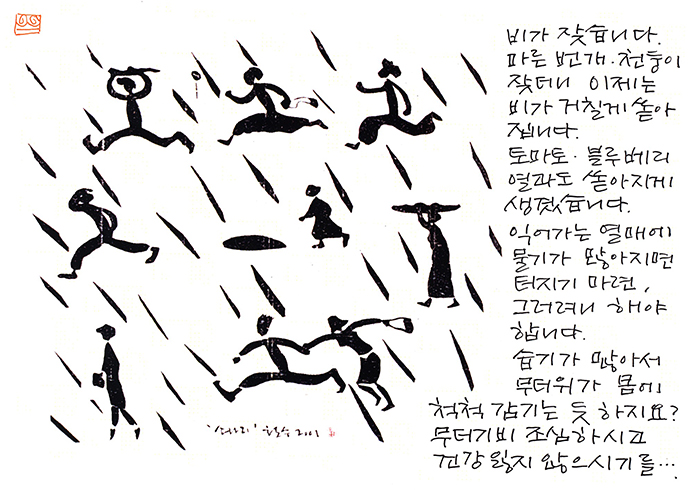 비가 잦습니다.
파른 번개·천둥이
잦더니 이제는
비가 거칠게 쏟아
집니다.
토마토·블루베리
열과도 쏟아지게
생겼습니다.
익어가는 열매에
물기가 많아지면
터지기 마련,
그러려니 해야
합니다.
습기가 많아서
무더위가 몸에
척척 감기는 듯 하지요?
무더기비 조심하시고
건강 잃지 않으시기를…
철수 2001